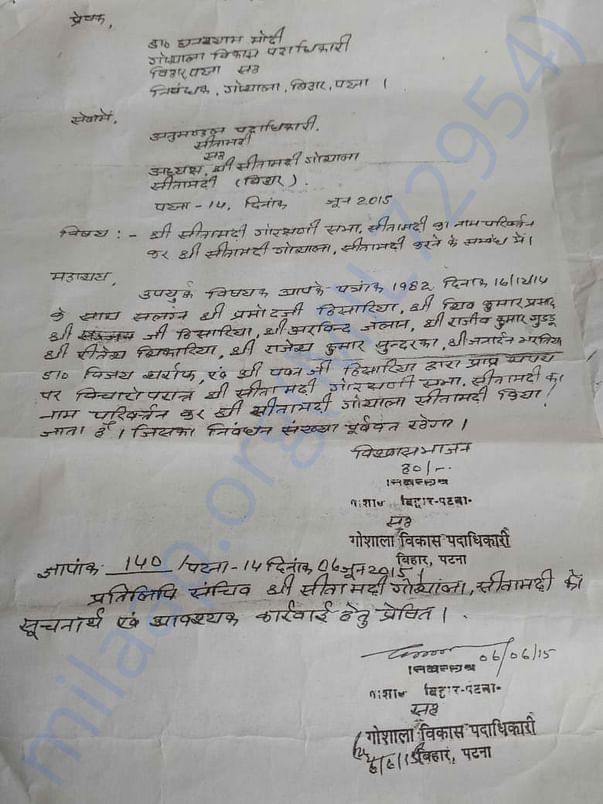 प्रेषक,
डा० घनश्याम मोदी
गोशाला विकास पदाधिकारी
बिहार, पटना सह
निबंधक, गोशाला, बिहार, पटना ।
सेवामें,
अनुमण्डल पदाधिकारी,
सीतामढ़ी
सह
अध्यक्ष, श्री सीतामढ़ी गोशाला
सीतामढ़ी (बिहार) .
पटना - 14, दिनांक जून 2015
विषय : - श्री सीतामढ़ी गोरक्षणी सभा, सीतामढ़ी का नाम परिवर्तन
कर श्री सीतामढ़ी गोशाला, सीतामढ़ी करने के सम्बंध में।
महाशय,
उपर्युक्त विषयक आपके पत्रांक 1982 दिनांक 16/12/14
के साथ संलग्न श्री प्रमोदजी हिसारिया, श्री शिव कुमार प्रसाद,
श्री जी हिसारिया, श्री अरविन्द जालान, श्री राजीव कुमार गुड्डू
श्री रीतेश शिकारिया, श्री राजेश कुमार सुन्दरका, श्री जनार्दन भरतिया
डा० विजय सर्राफ, एवं श्री पवन जी हिसारिया द्वारा प्राप्त शपथ
पर विचारोपरान्त श्री सीतामढ़ी गोरक्षणी सभा, सीतामढ़ी का
नाम परिवर्तन कर श्री सीतामढ़ी गोशाला सीतामढ़ी किया
जाता है । जिसका निबंधन संख्या पूर्ववत रहेगा ।
विश्वासभाजन
ह०/-
बिहार-पटना-
सह
गोशाला विकास पदाधिकारी
बिहार, पटना
ज्ञापांक 140 / पटना - 14 दिनांक 06 जून 2015
प्रतिलिपि सचिव श्री सीतामढ़ी गोशाला, सीतामढ़ी को
सूचनार्थ एवं आवश्यक कार्रवाई हेतु प्रेषित ।
06/06/15
बिहार-पटना-
सह
गोशाला विकास पदाधिकारी
बिहार, पटना